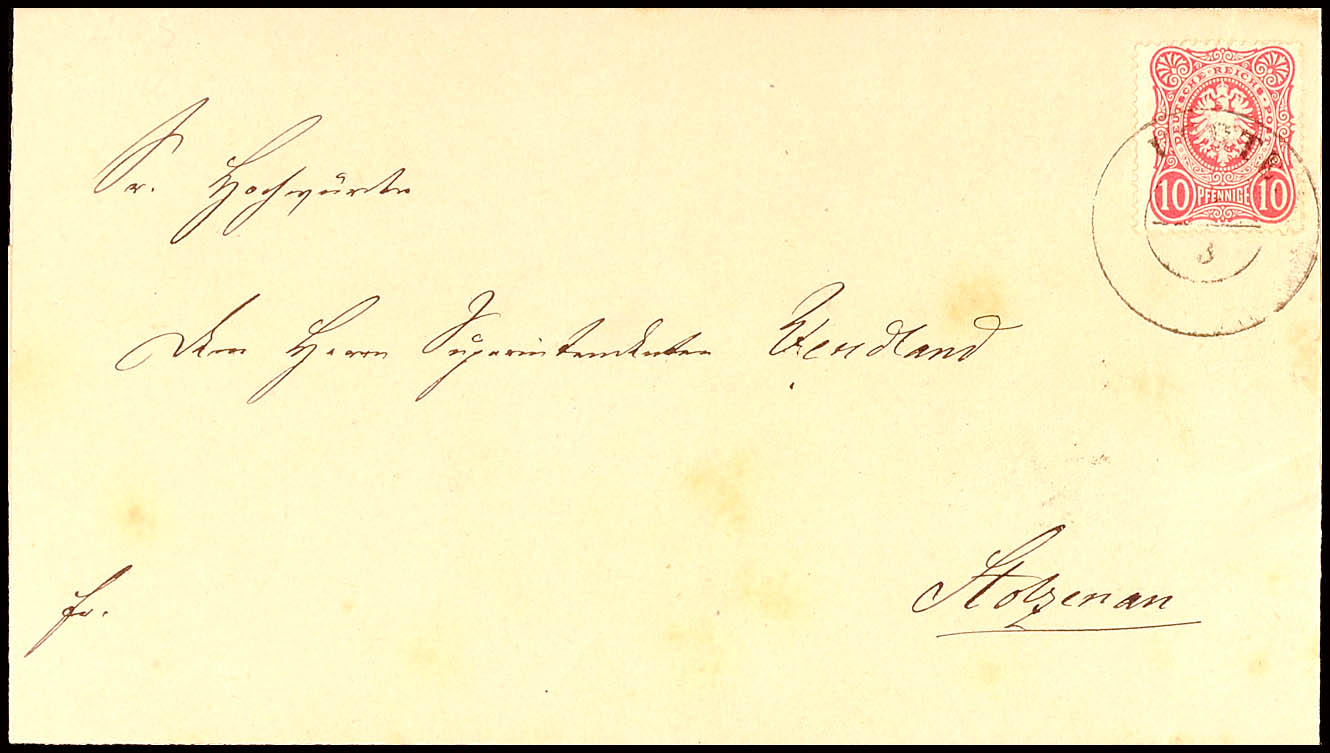 DEUTSCHE · REICHS · POST
10 PFENNIGE 10
8
Sr. Hochwürden
dem Herrn Superintendenten Wendland
fr.
Stolzenau